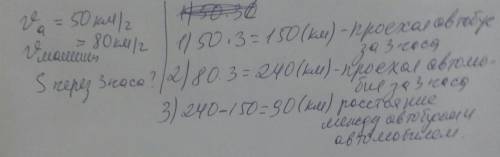 vₐ = 50 км/г
vмашин
= 80 км/г
S через 3 часа?
1) 50·3=150 (км) - проехал автобус
за 3 часа
2) 80·3=240 (км) - проехал автомо-
биль за 3 часа
3) 240-150=90 (км) расстояние
между автобусом и
автомобилем.